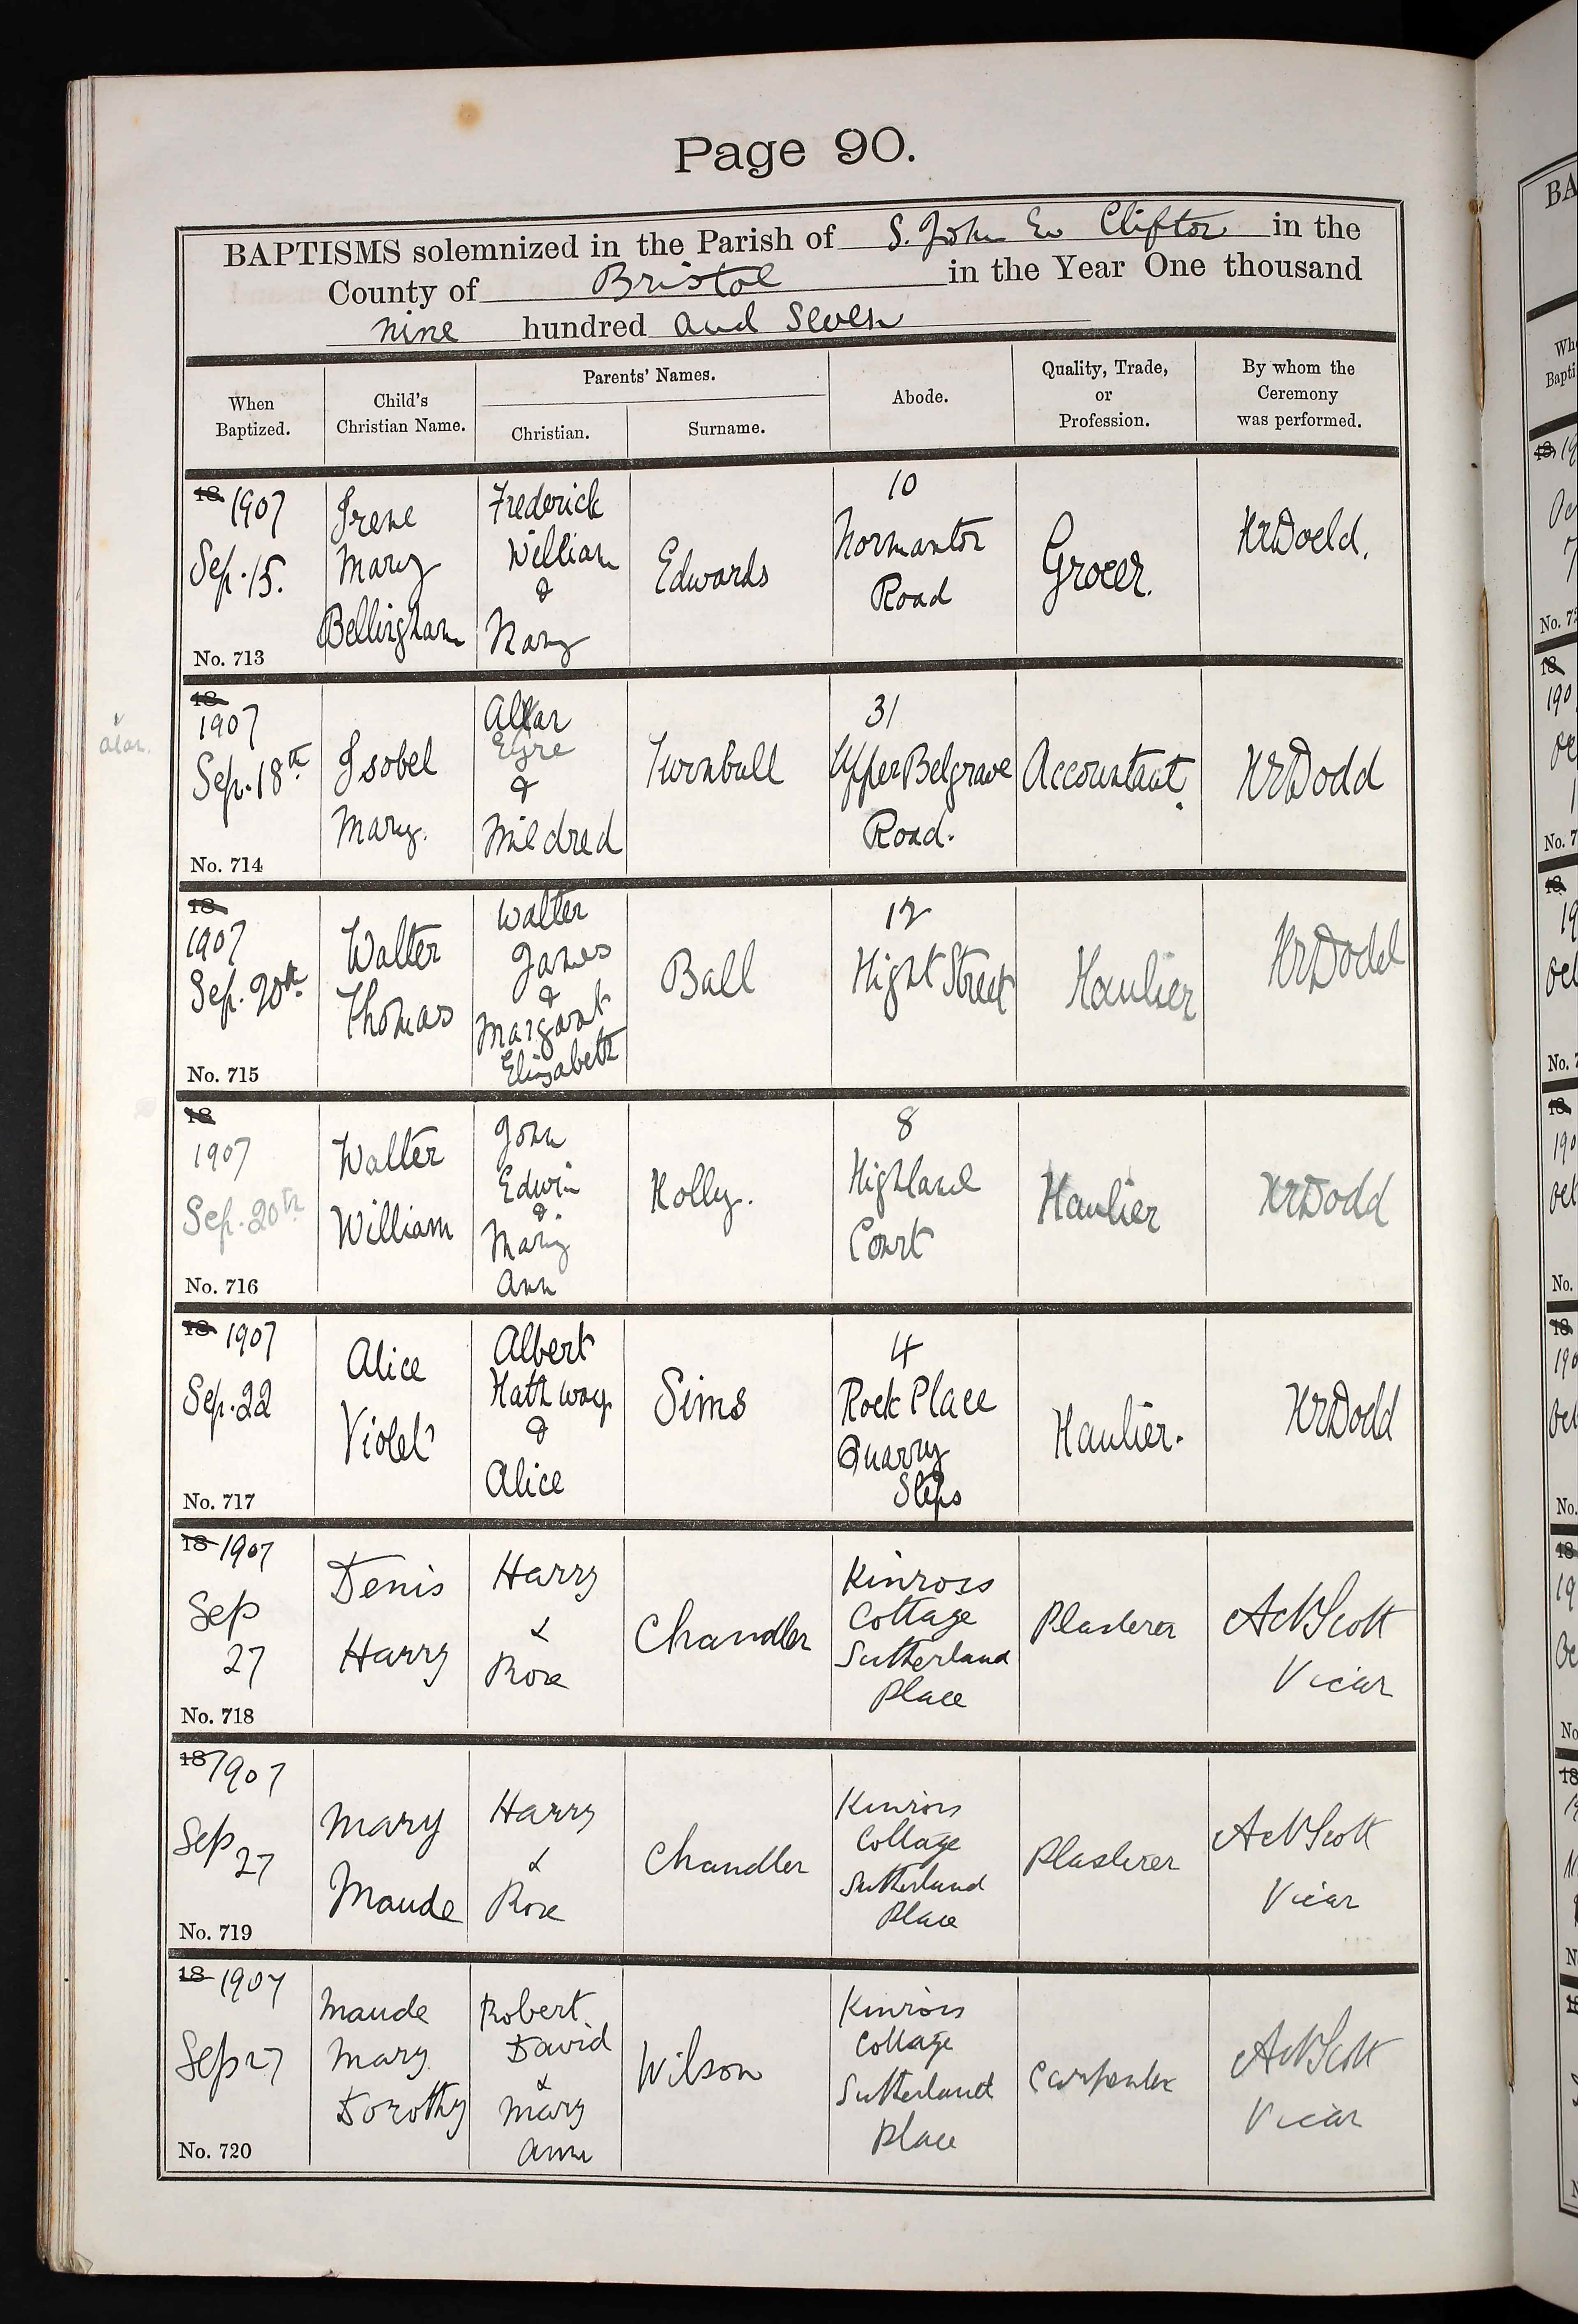 Page 90.
BAPTISMS solemnized in the Parish of S. John Ev Clifton in the
County of Bristol in the Year One thousand
nine hundred and seven
When Baptized.
Child's Christian Name.
Parents' Names.
Christian.
Surname.
Abode.
Quality, Trade, or Profession.
By whom the Ceremony was performed.
18 1907
Sep. 15.
No. 713
Irene
Mary
Bellingham
Frederick
William
&
Mary
Edwards
10
Normanton
Road
Grocer.
HRDodd.
18
1907
Sep. 18th
No. 714
Isobel
Mary.
Eyre
&
Mildred
Turnbull
31
Upper Belgrave
Road.
Accountant.
HRDodd
18
1907
Sep. 20th
No. 715
Walter
Thomas
Walter
James
&
Margaret
Elizabeth
Ball
12
Hight Street
Haulier
HRDodd
18
1907
Sep. 20th
No. 716
Walter
William
John
Edwin
&
Mary
Ann
Holly.
8
Highland
Court
Haulier
HRDodd
18 1907
Sep. 22
No. 717
Alice
Violet
Albert
Hathway
&
Alice
Sims
4
Rock Place
Quarry
Steps
Haulier.
HRDodd
18 1907
Sep
27
No. 718
Denis
Harry
Harry
&
Rose
Chandler
Kinross
Cottage
Sutherland
Place
Plasterer
Scott
Vicar
18 1907
Sep
27
No. 719
Mary
Maude
Harry
&
Rose
Chandler
Kinross
Cottage
Sutherland
Place
Plasterer
Scott
Vicar
18 1907
Sep 27
No. 720
Maude
Mary
Dorothy
Robert
David
&
Mary
Ann
Wilson
Kinross
Cottage
Sutherland
Place
Carpenter
Scott
Vicar